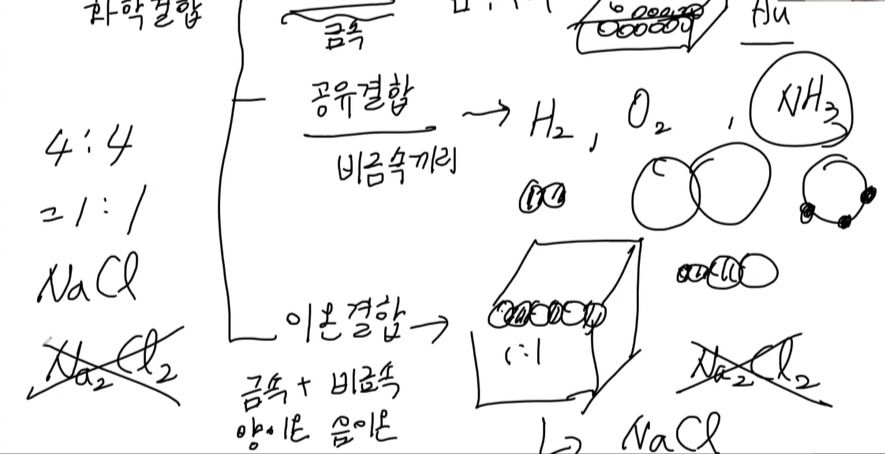 화학결합
금속
Au
공유결합 → H₂, O₂, NH₃
비금속끼리
4:4
=1:1
NaCl
Na₂Cl₂
이온결합 →
1:1
금속 + 비금속
양이온 음이온
Na₂Cl₂
↳ NaCl